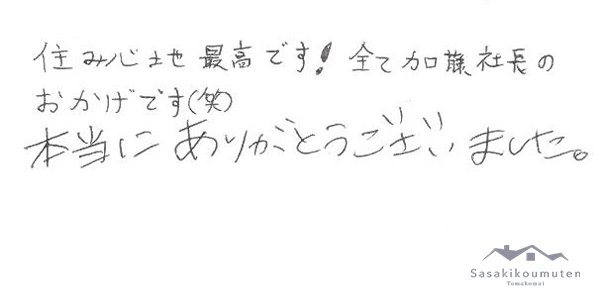 住み心地最高です!全て加藤社長の
おかげです(笑)
本当にありがとうございました。
Sasakikoumuten
Tomakomai